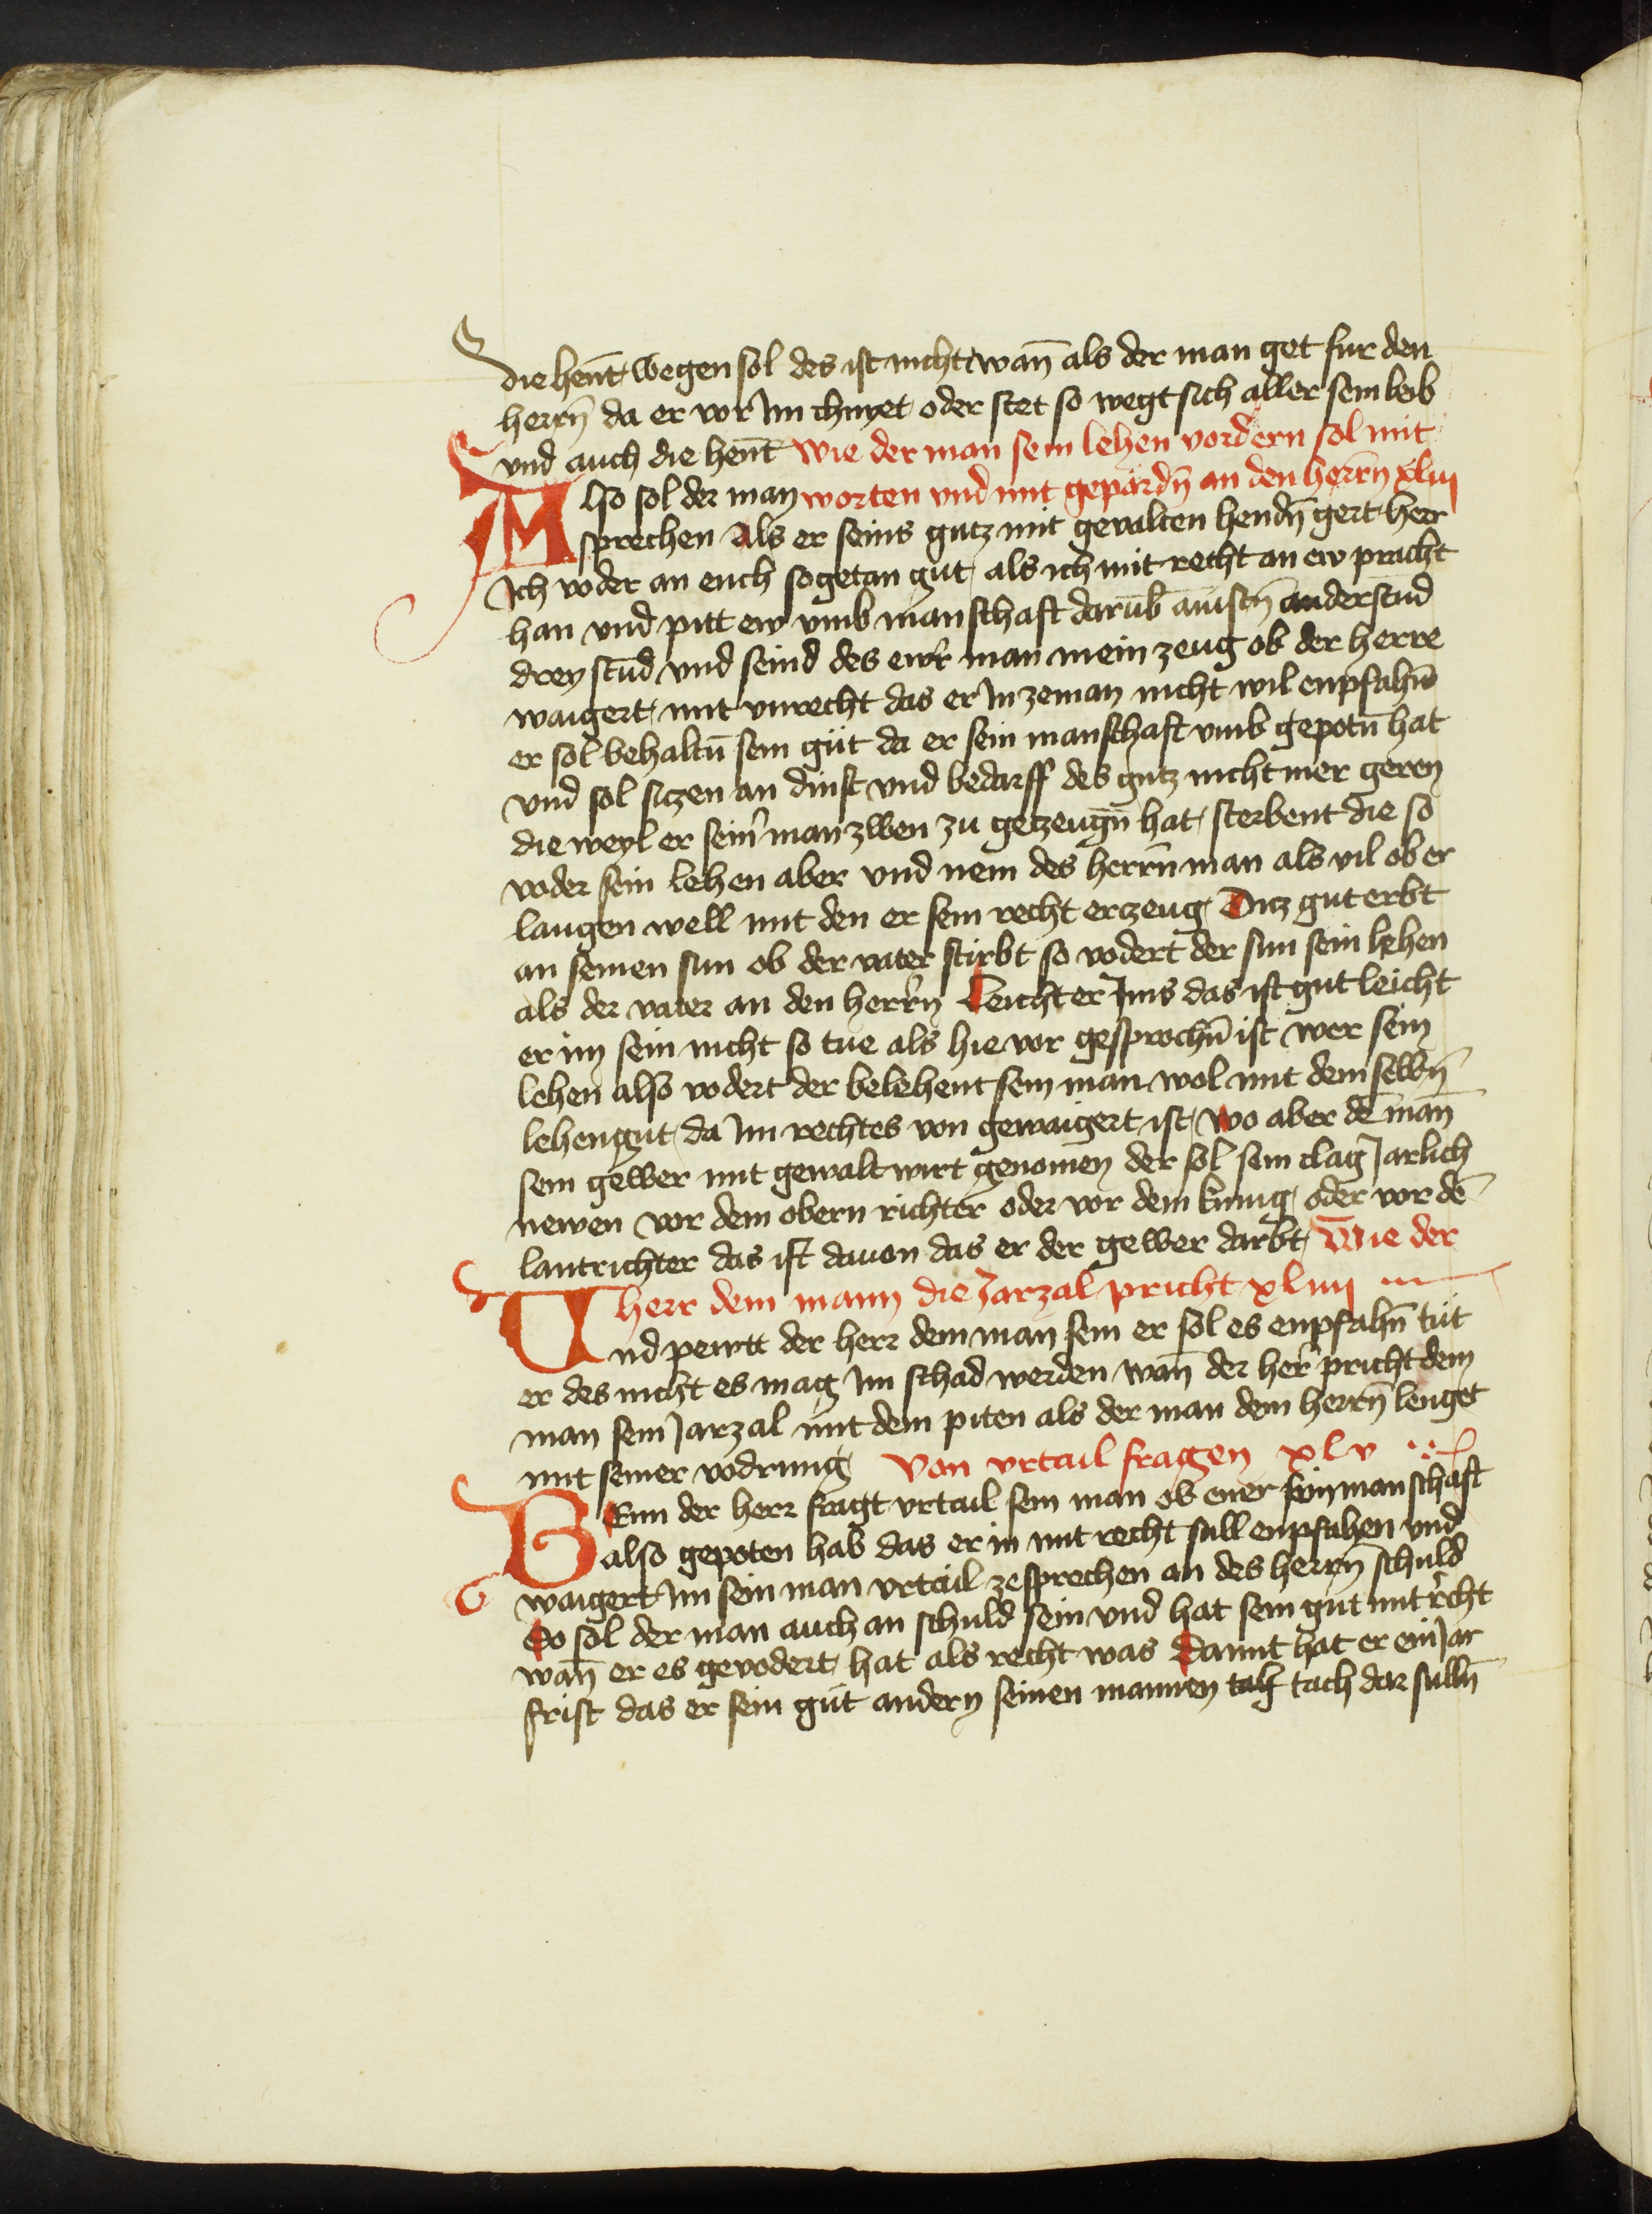 die hent̄ wegen sol des ist nicht wan̄ als der man get fur den
herrn̄ da er vor Im chnyet oder stet so wegt sich aller sein leib
vnd auch die hent̄ Wie der man sein lehen vordern sol mit
Also sol der man worten vnd mit gepärdn̄ an den herrn̄ xliii
sprechen Als er seins gutz mit gevalten hendn̄ gert herr
Ich voder an euch sogetan gut als ich mit recht an ew pracht
han vnd pitt ew vmb manschaft darub̄ ainstn̄ anderstūd
drey stūd vnd seind des ewr̄ man mein zeug ob der herre
waigert mit vnrecht das er In zeman nicht wil enpfahn̄
er sol behaltn̄ sein güt da er sein manschaft vmb gepotn̄ hat
vnd sol sitzen an dinst vnd bedarff des gutz nicht mer geren
die weyl er sein̄ man zwen zu getzeugn̄ hat sterbent die so
voder sein lehen aber vnd nem des herrn̄ man als vil ob er
laugen well mit den er sein recht erzeug Ditz gut erbt
an seinen sun ob der vater stirbt so vodert der sun sein lehen
als der vater an den herr̄n Leicht er Ims das ist gut leicht
er im sein nicht so tue als hie vor gesprochn̄ ist wer sein
lehen also vodert der belehent sein man wol mit dem selbn̄
lehengut da Im rechtes von gewaigert ist Wo aber dē man̄
sein gewer mit gewalt wirt genomen der sol sein clag Jarlich
newen vor dem obern richter oder vor dem kunig oder vor dē
lantrichter das ist dauon das er der gewer darbt Wie der
herr dem mann die Jarzal pricht xliiii
Vnd pewtt der herr dem man sein er sol es enpfahn̄ tüt
er des nicht es mag Im schad werden wan̄ der her̄ pricht dem
man sein Jarzal mit dem piten als der man dem herrn̄ lenget
mit seiner vodrung Von vrtail fragen xlv
BEnn der herr fragt vrtail sein man ob ener sein manschaft
also gepoten hab das er in mit recht sull enpfahen vnd
waigert Im sein man vrtail zesprechen an des herrn̄ schuld
So sol der man auch an schuld sein vnd hat sein gut mit r̄cht
wan̄ er es gevodert hat als recht was Damit hat er ein Jar
frist das er sein güt andern seinen mannen tach dar sulln̄